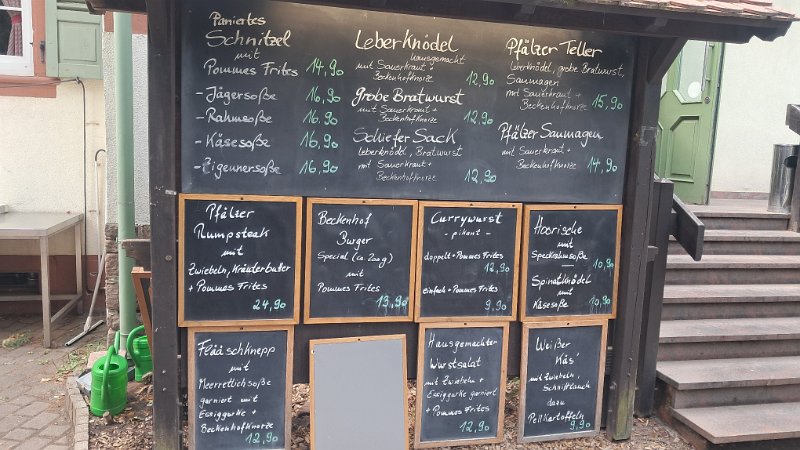 Paniertes
Schnitzel
mit
Pommes Frites 14,90
- Jägersoße 16,90
- Rahmsoße 16,90
- Käsesoße 16,90
- Zigeunersoße 16,90
Leberknödel
hausgemacht
mit Sauerkraut +
Beckenhofknorze 12,90
grobe Bratwurst
mit Sauerkraut +
Beckenhofknorze 12,90
Schiefer Sack
Leberknödel, Bratwurst
mit Sauerkraut +
Beckenhofknorze 12,90
Pfälzer Teller
Leberknödel, grobe Bratwurst,
Saumagen
mit Sauerkraut +
Beckenhofknorze 15,90
Pfälzer Saumagen
mit Sauerkraut +
Beckenhofknorze 14,90
Pfälzer
Rumpsteak
mit
Zwiebeln, Kräuterbutter
+ Pommes Frites
24,90
Beckenhof
Burger
Special (ca 200g)
mit
Pommes Frites
13,90
Currywurst
- pikant -
doppelt + Pommes Frites
12,90
einfach + Pommes Frites
9,90
Hoorische
mit
Speckrahmsoße
10,90
Spinatknödel
mit
Käsesoße 10,90
Flääschknepp
mit
Meerrettichsoße
garniert mit
Essiggurke +
Beckenhofknorze
12,90
Hausgemachter
Wurstsalat
mit Zwiebeln +
Essiggurke garniert
+ Pommes Frites
12,90
Weißer
Käs'
mit Zwiebeln,
Schnittlauch
dazu
Pellkartoffeln
9,90